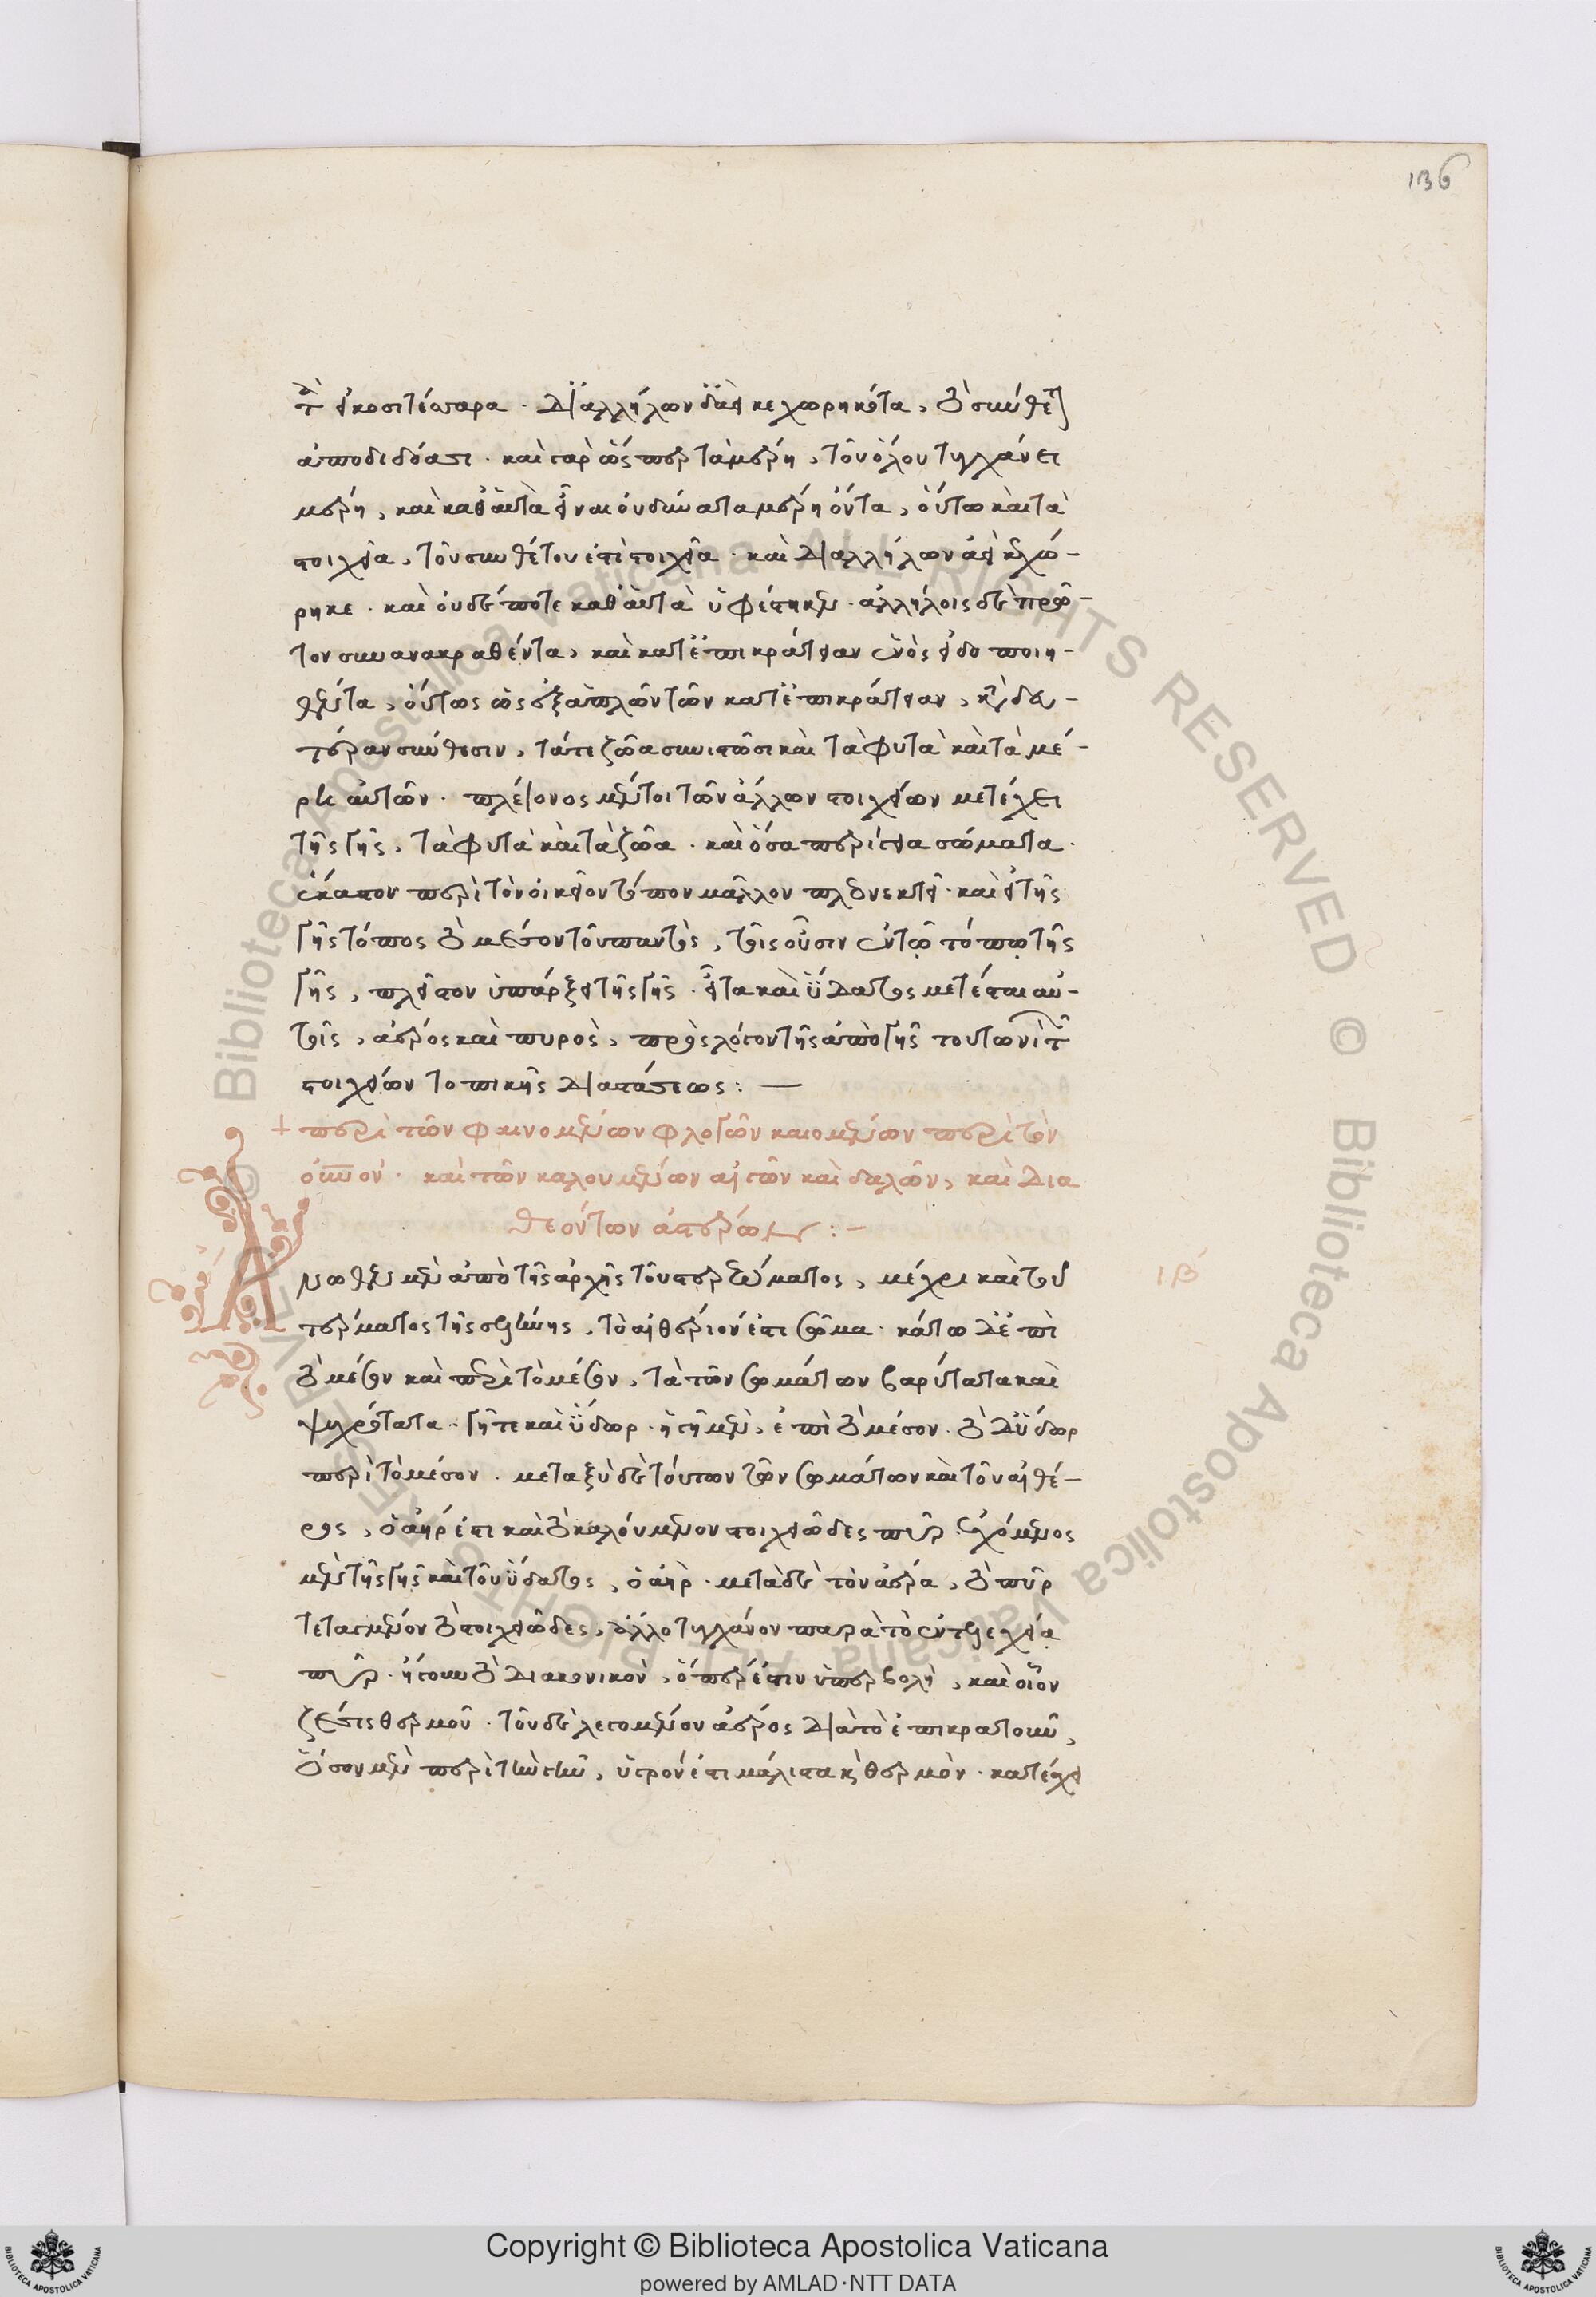 136
τὰ εἰκοσιτέσσαρα · δι' ἀλλήλων διακεχωρηκότα, τὸ σύνθετον
ἀποδιδόασι · καὶ γὰρ ὥσπερ τὰ μέρη, τοῦ ὅλου τυγχάνει
μέρη, καὶ καθ' αὑτὰ εἶναι οὐ δύναται μέρη ὄντα, οὕτω καὶ τὰ
στοιχεῖα, τοῦ συνθέτου ἐστὶ στοιχεῖα · καὶ δι' ἀλλήλων ἀεὶ κεχώ-
ρηκε · καὶ οὐδέποτε καθ' αὑτὰ ὑφέστηκεν · ἀλλήλοις δὲ πρῶ-
τον συνανακραθέντα, καὶ κατ' ἐπικράτειαν ἑνὸς εἰδοποιη-
θέντα, οὕτως ὡς ἐξ ἁπλῶν τῶν κατ' ἐπικράτειαν, κατὰ δευ-
τέραν σύνθεσιν, τά τε ζῶα συνιστῶσι καὶ τὰ φυτὰ καὶ τὰ μέ-
ρη αὐτῶν · πλείονος μέντοι τῶν ἄλλων στοιχείων μετέχει
τῆς γῆς, τὰ φυτὰ καὶ τὰ ζῶα · καὶ ὅσα περίγεια σώματα ·
ἕκαστον περὶ τὸν οἰκεῖον τόπον μᾶλλον πλεονεκτεῖ · καὶ εἰ τῆς
γῆς τόπος τὸ μέσον τοῦ παντός, τοῖς οὖσιν ἐν τῷ τόπῳ τῆς
γῆς, πλεῖστον ὑπάρξει τῆς γῆς · εἶτα καὶ ὕδατος μετέσται αὐ-
τοῖς, ἀέρος καὶ πυρὸς, πρὸς λόγον τῆς ἀπὸ γῆς τουτωνὶ τῶν
στοιχείων τοπικῆς διαστάσεως : —
+ περὶ τῶν φαινομένων φλογῶν καιομένων περὶ τὸν
οὐρανόν · καὶ τῶν καλουμένων αἰγῶν καὶ δαλῶν, καὶ δια
θεόντων ἀστέρων : –
Ἄνωθεν μὲν ἀπὸ τῆς ἀρχῆς τοῦ στερεώματος, μέχρι καὶ τοῦ
τέρματος τῆς σελήνης, τὸ αἰθέριόν ἐστι σῶμα · κάτω δ' ἐπὶ
τὸ μέσον καὶ περὶ τὸ μέσον, τὰ τῶν σωμάτων βαρύτατα καὶ
ψυχρότατα · γῆ τε καὶ ὕδωρ · ἡ γῆ μὲν, ἐπὶ τὸ μέσον · τὸ δ' ὕδωρ
περὶ τὸ μέσον · μεταξὺ δὲ τούτων τῶν σωμάτων καὶ τοῦ αἰθέ-
ρος, ὁ ἀήρ ἐστι καὶ τὸ καλούμενον στοιχειῶδες πῦρ · ἐχόμενος
μὲν τῆς γῆς καὶ τοῦ ὕδατος, ὁ ἀὴρ · μετὰ δὲ τὸν ἀέρα, τὸ πῦρ
τεταγμένον τὸ στοιχειῶδες, ἄλλο τυγχάνον παρὰ τὸ ἐντελεχείᾳ
πῦρ · ἤγουν τὸ διακονικὸν, ὅπερ ἐστὶν ὑπερβολὴ, καὶ οἷον
ζέσις θερμοῦ · τοῦ δὲ λεγομένου ἀέρος διὰ τὸ ἐπικρατοῦν,
τὸ ὅσον μὲν περὶ τὴν γῆν, ὑγρόν ἐστι μάλιστα καὶ θερμὸν · κατέχει
ιβ